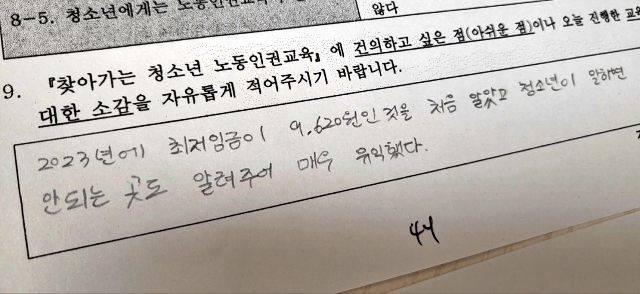 8-5. 청소년에게는 노동인권교육
않다
9. 『찾아가는 청소년 노동인권교육』에 건의하고 싶은 점(아쉬운 점)이나 오늘 진행한 교육
대한 소감을 자유롭게 적어주시기 바랍니다.
2023년에 최저임금이 9,620원인 것을 처음 알았고 청소년이 일하면
안되는 곳도 알려주어 매우 유익했다.
44